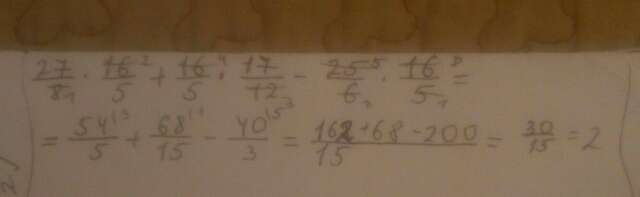 27/8₁ · 16²/5 + 16⁴/5 · 17/12 - 25⁵/6₃ · 16⁸/5₁ =
= 54⁽³/5 + 68⁽¹/15 - 40⁽⁵/3 = 162+68-200/15 = 30/15 = 2
2)